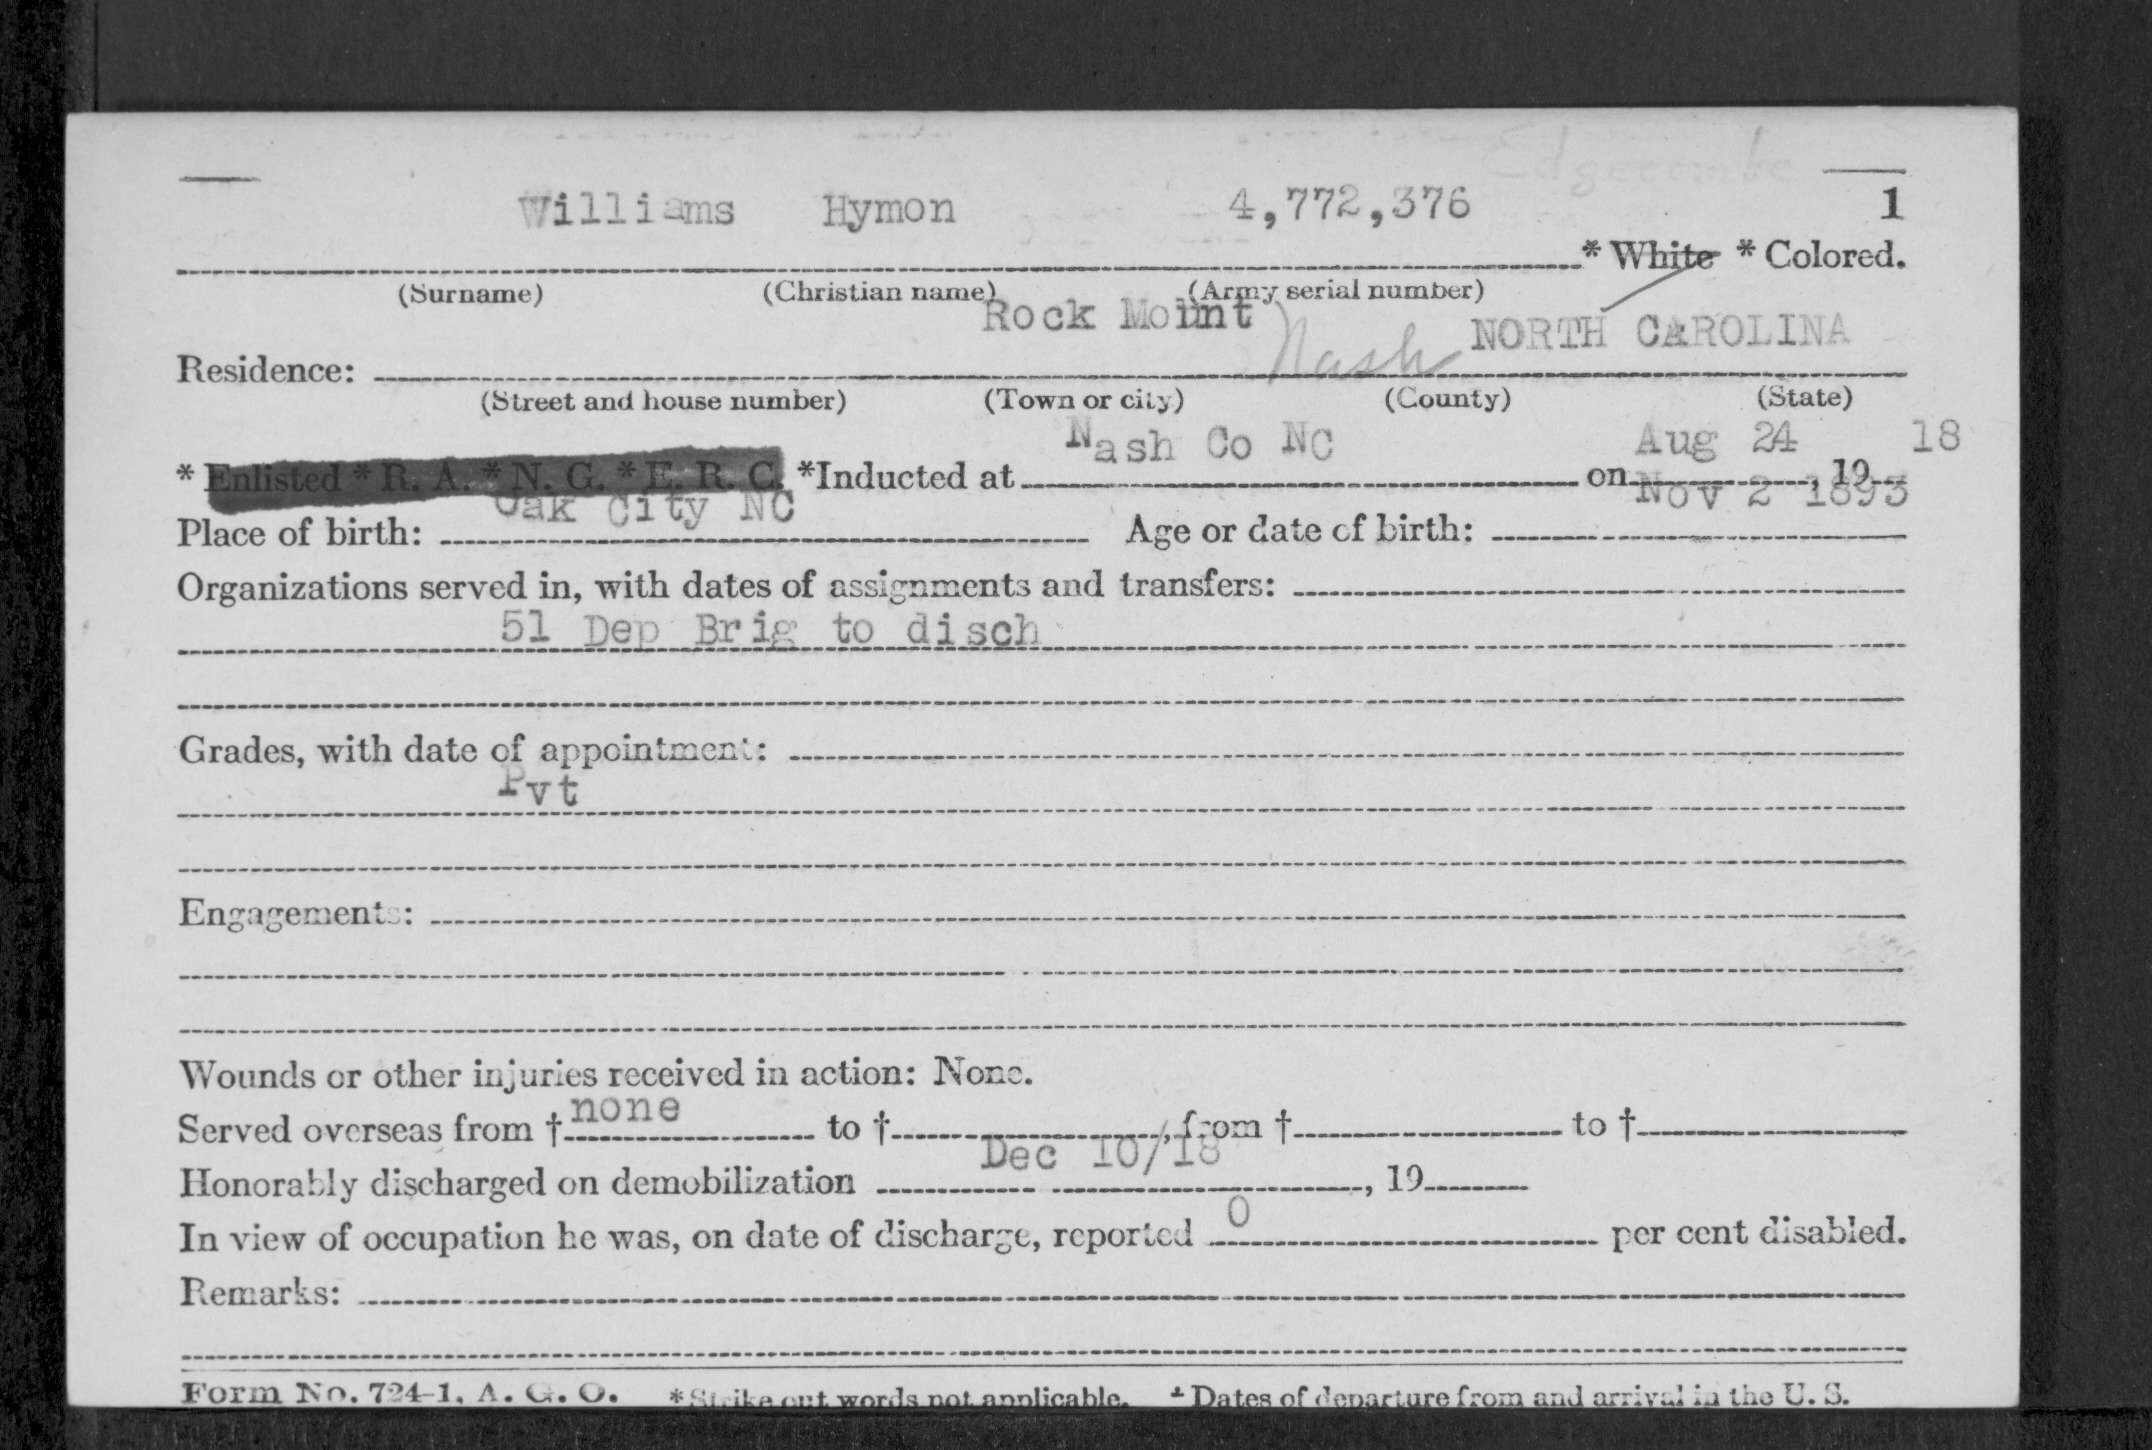 Edgecombe
Williams Hymon 4,772,376 1
* White * Colored.
(Surname) (Christian name) (Army serial number)
Rock Mount Nash NORTH CAROLINA
Residence:
(Street and house number) (Town or city) (County) (State)
Nash Co NC Aug 24 18
* Enlisted * R. A. * N. G. * E. R. C. *Inducted at on , 19
Oak City NC Nov 2 1893
Place of birth: Age or date of birth:
Organizations served in, with dates of assignments and transfers:
51 Dep Brig to disch
Grades, with date of appointment:
Pvt
Engagements:
Wounds or other injuries received in action: None.
none
Served overseas from † to † , from † to †
Dec 10/18
Honorably discharged on demobilization , 19
0
In view of occupation he was, on date of discharge, reported per cent disabled.
Remarks:
Form No. 724-1, A. G. O. *Strike out words not applicable. † Dates of departure from and arrival in the U. S.